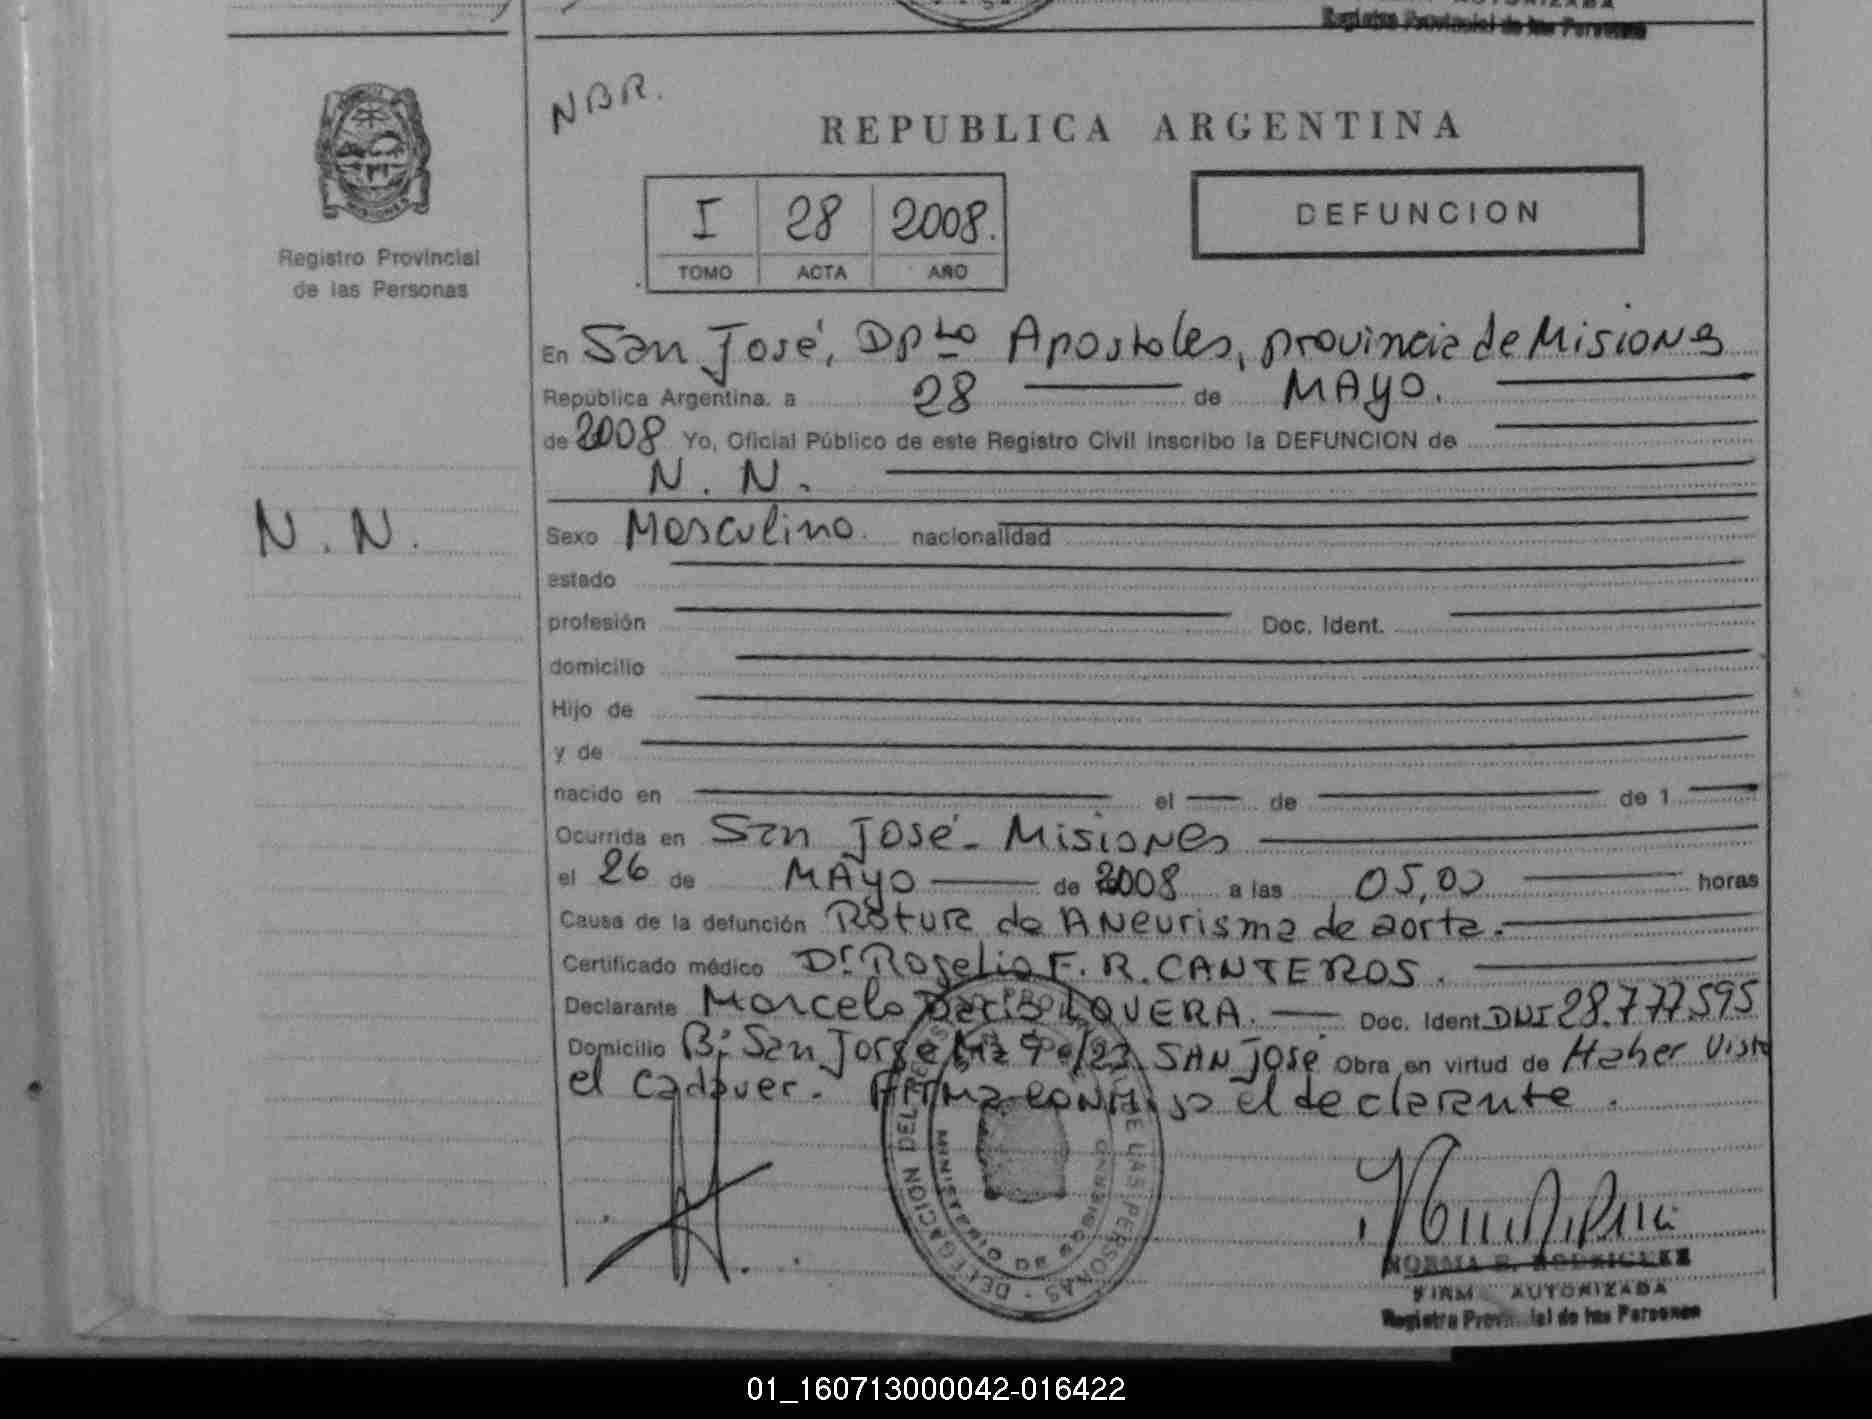 AUTORIZADA
Registro Provincial de las Personas
NBR.
MISIONES
Registro Provincial
de las Personas
REPUBLICA ARGENTINA
I 28 2008.
TOMO ACTA AÑO
DEFUNCION
En San José, Dpto Apostoles, provincia de Misiones
República Argentina, a 28 de MAYO.
de 2008 Yo, Oficial Público de este Registro Civil inscribo la DEFUNCION de
N. N.
N. N.
Sexo Masculino. nacionalidad
estado
profesión Doc. Ident.
domicilio
Hijo de
y de
nacido en el de de 1
Ocurrida en San José - Misiones
el 26 de MAYO de 2008 a las 05,00 horas
Causa de la defunción Rotura de Aneurisma de aorta.
Certificado médico Dr. Rogelio F. R. CANTEROS.
Declarante Marcelo QUERA. Doc. Ident. DNI 28.777.595
Domicilio B: San Jorge Mz SAN José Obra en virtud de Haber Visto
el cadaver. el declarante.
DELEGACION DEL LAS PERSONAS
MINISTERIO DE GOBIERNO
NORMA B. RODRIGUEZ
FIRMA AUTORIZADA
Registro Provincial de las Personas
01_160713000042-016422